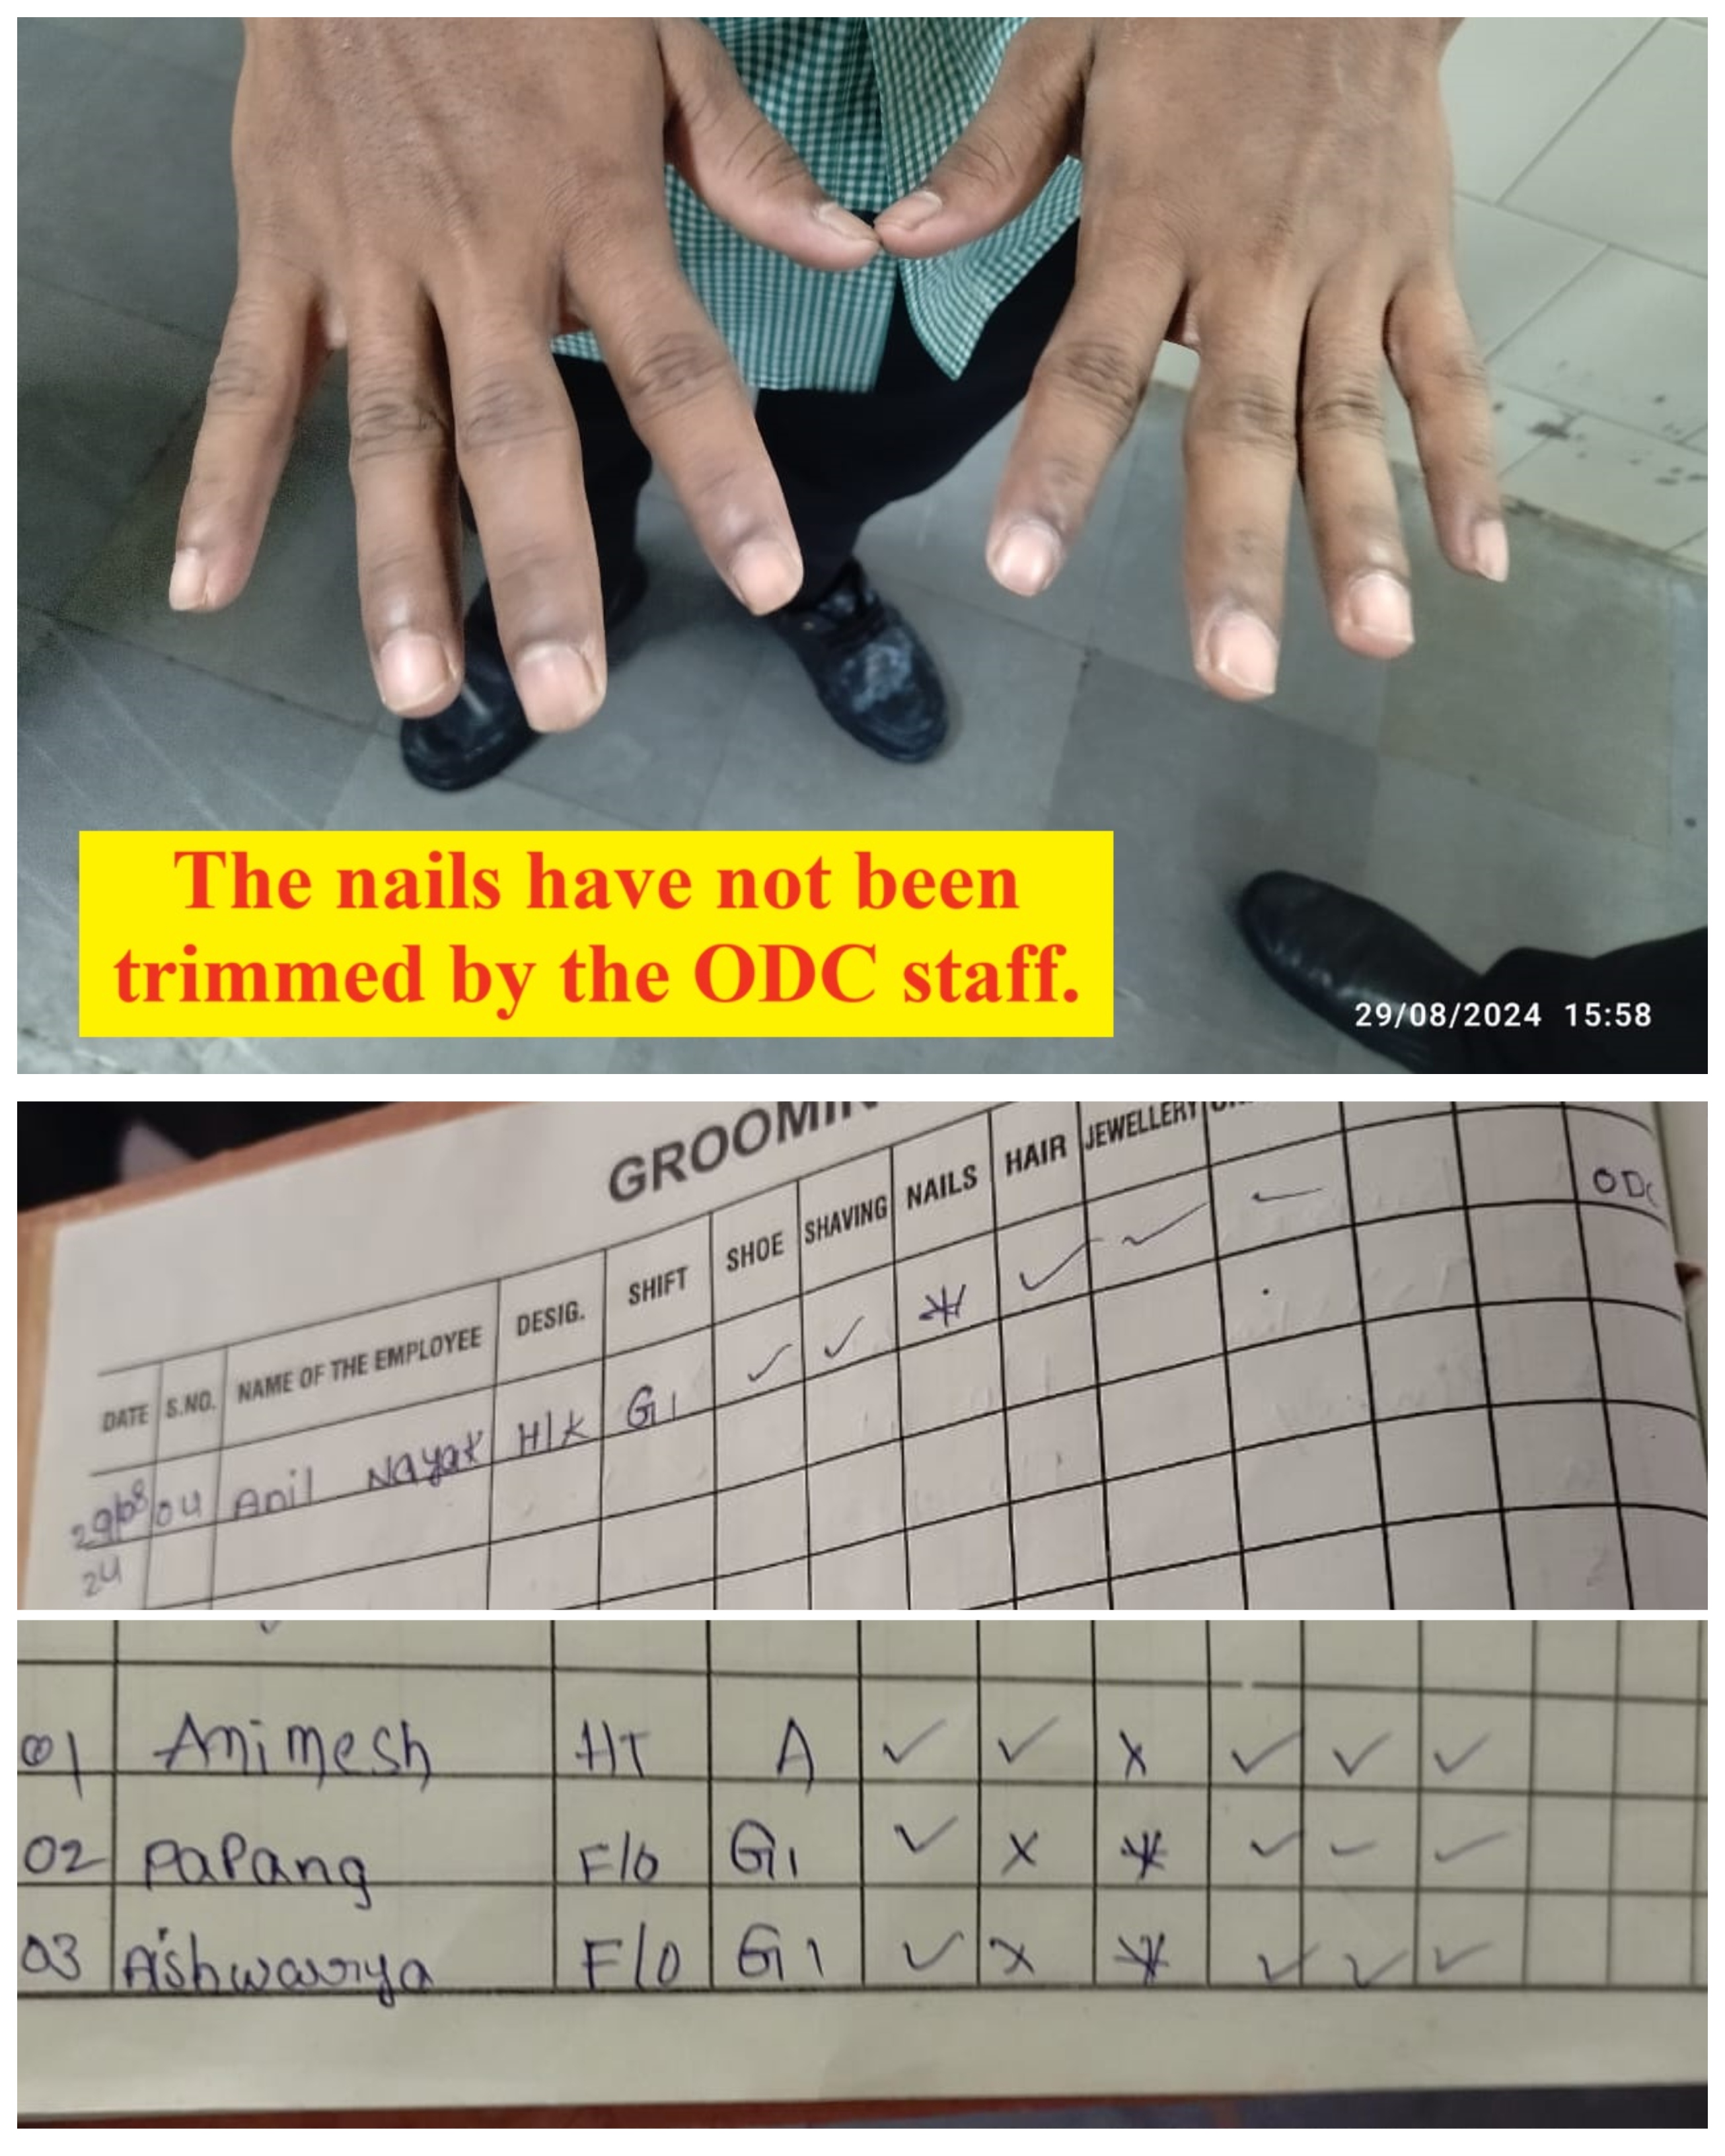 The nails have not been
trimmed by the ODC staff.
29/08/2024 15:58
DATE S.NO. NAME OF THE EMPLOYEE DESIG. SHIFT SHOE SHAVING NAILS HAIR JEWELLERY
29/08 04 Anil Nayak H/K G1 ✓ ✓ ✓ ✓ ODC
24
01 Animesh HT A ✓ ✓ x ✓ ✓ ✓
02 PaPang F/O G1 ✓ x ✓ - ✓
03 Aishwarya F/O G1 ✓ x ✓ ✓ ✓